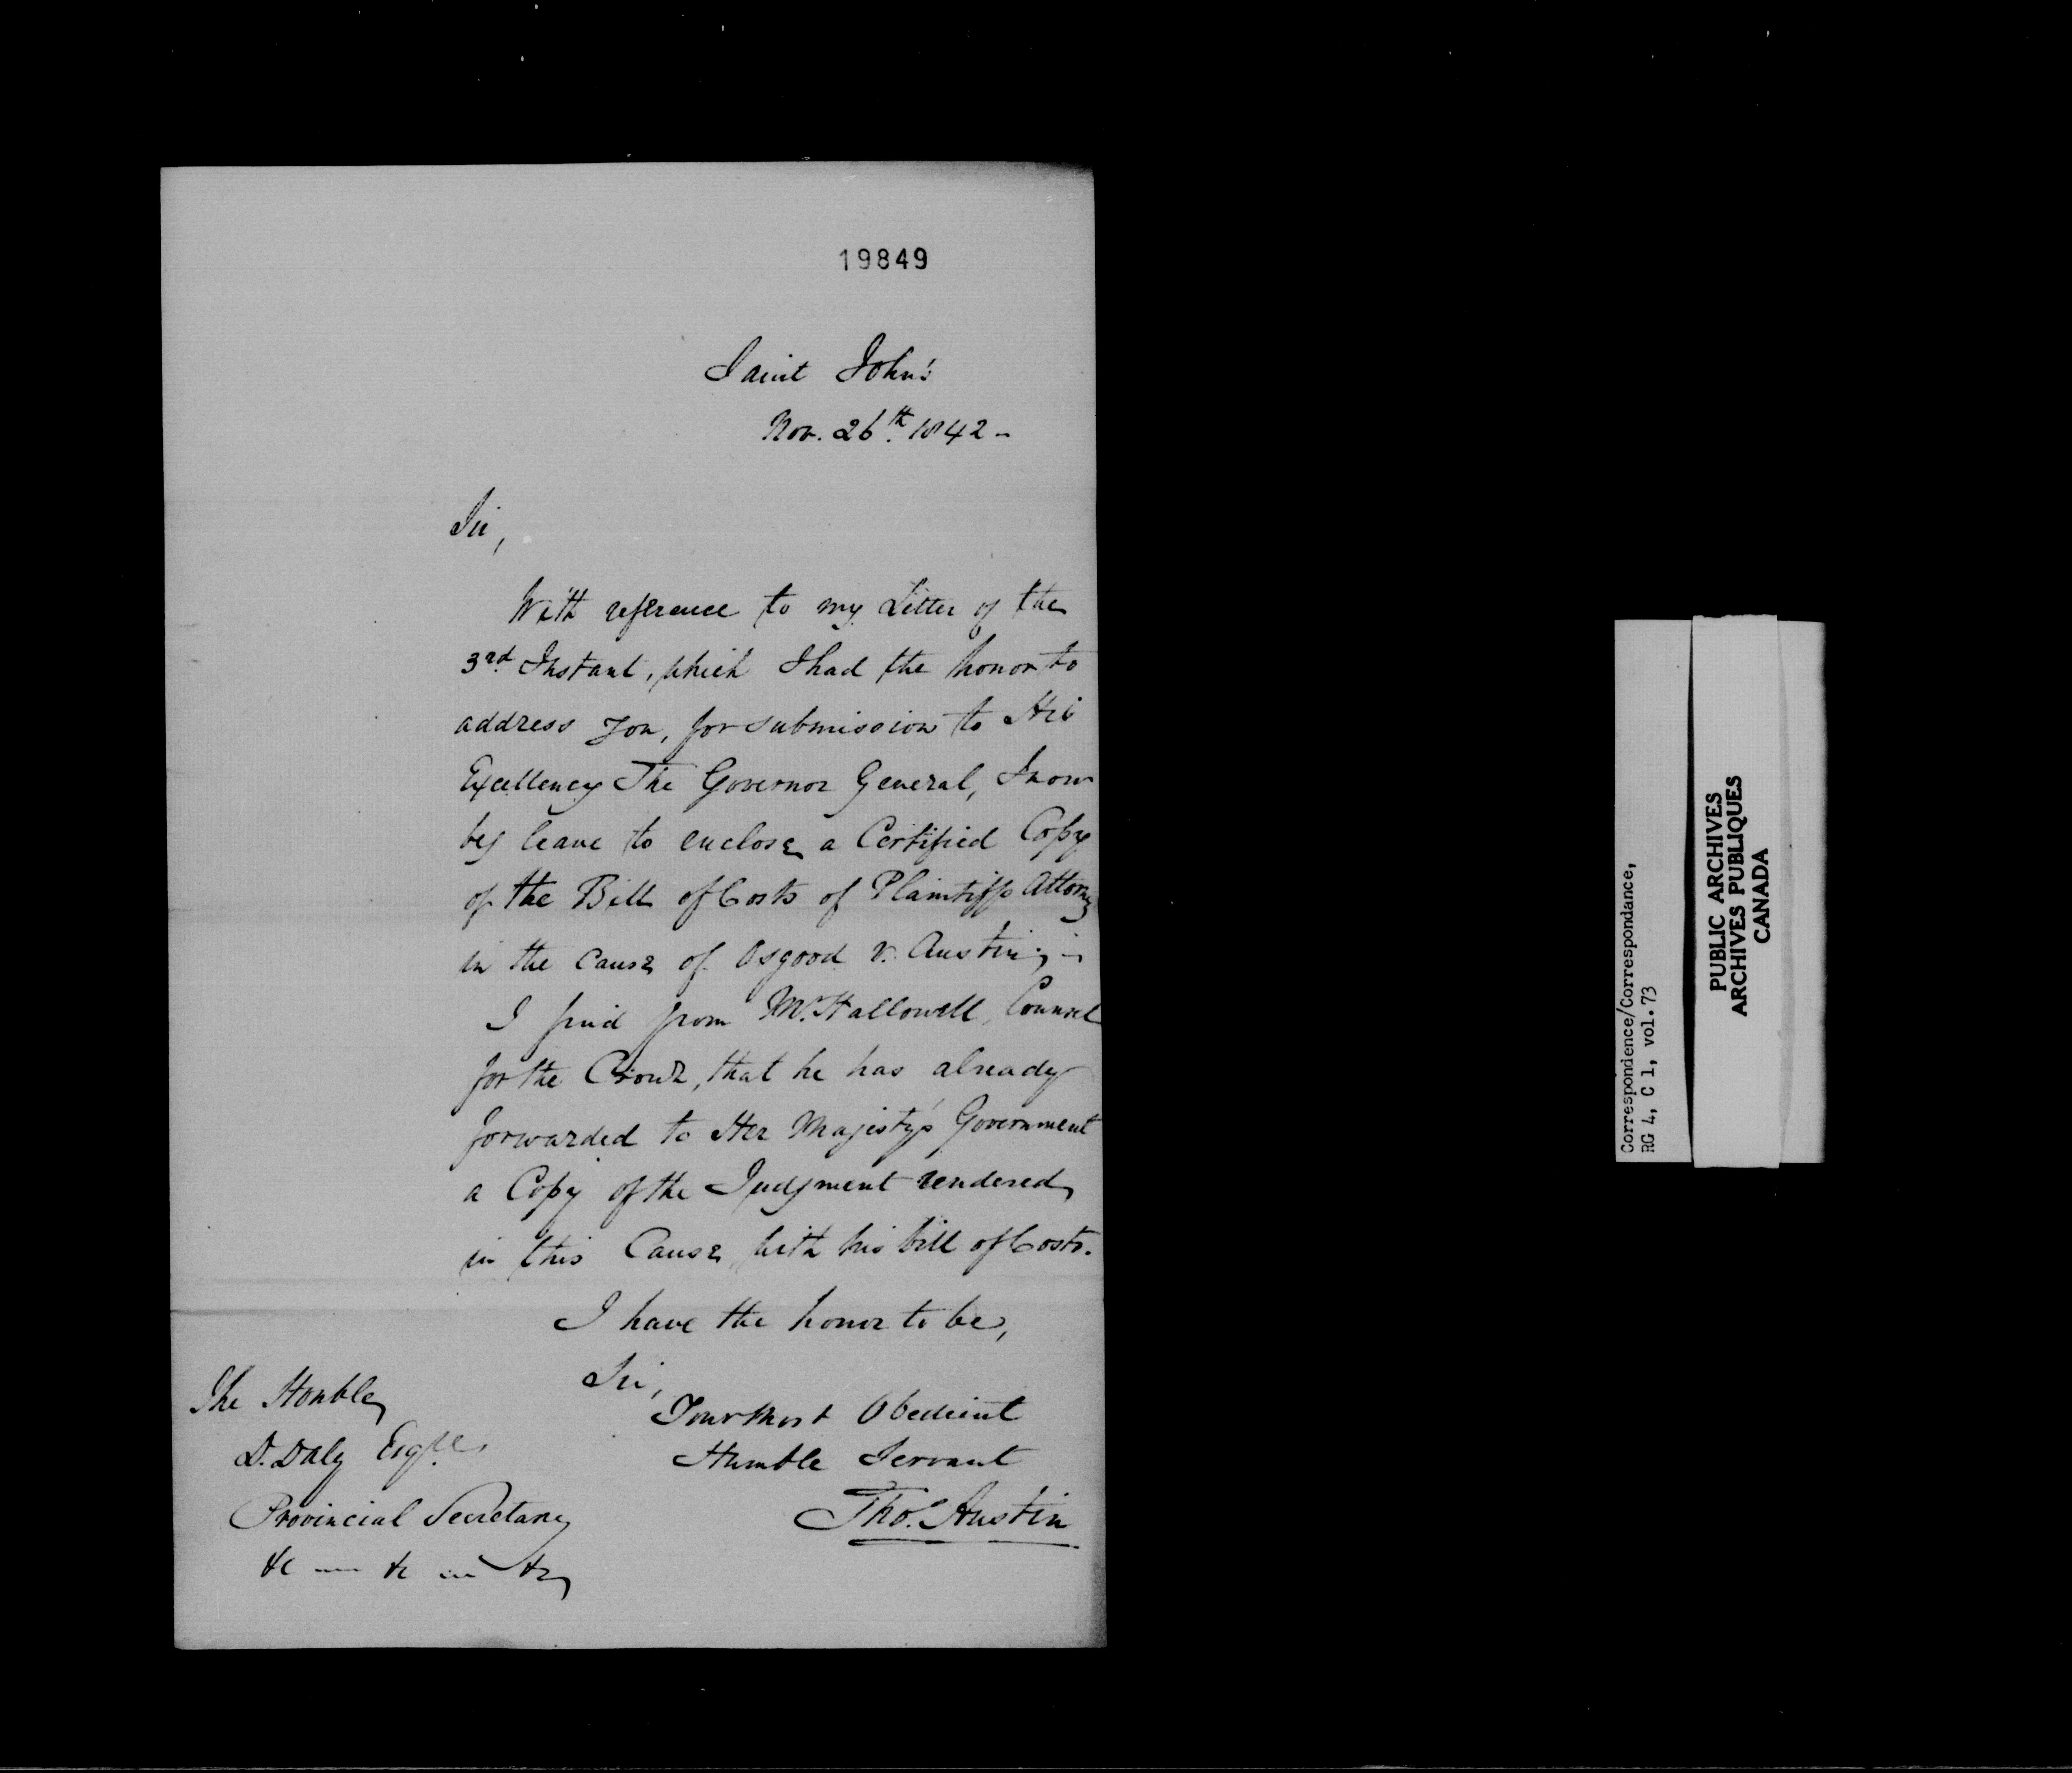 19849
Saint John's
Nov. 26th. 1842 -
Sir,
With reference to my Letter of the
3rd. Instant, which I had the honor to
address you, for submission to His
Excellency The Governor General, I now
beg leave to enclose a Certified Copy
of the Bill of Costs of Plaintiffs Attorney
in the Cause of Osgood v. Austin; -
I find from Mr. Hallowell, Counsel
for the Crown, that he has already
forwarded to Her Majesty's Government
a Copy of the Judgment rendered
in this Cause, with his bill of Costs.
I have the honor to be,
Sir,
Your Most Obedient
Humble Servant
Thos. Austin
The Honble
D. Daly Esqre.
Provincial Secretary
&c — &c — &c
Correspondence/Correspondance,
RG 4, C 1, vol. 73
PUBLIC ARCHIVES
ARCHIVES PUBLIQUES
CANADA